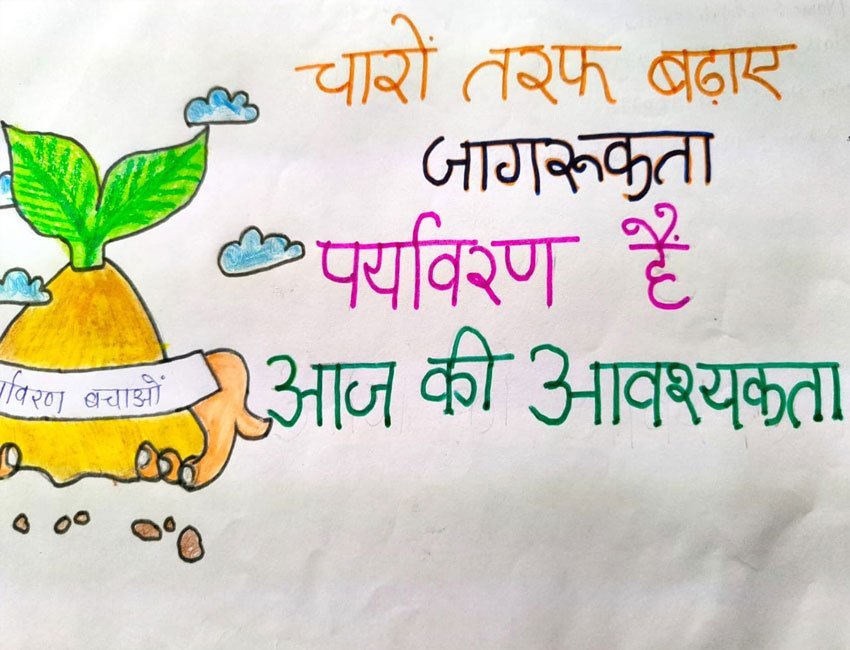 चारों तरफ बढ़ाए
जागरूकता
पर्यावरण हैं
आज की आवश्यकता
बचाओं